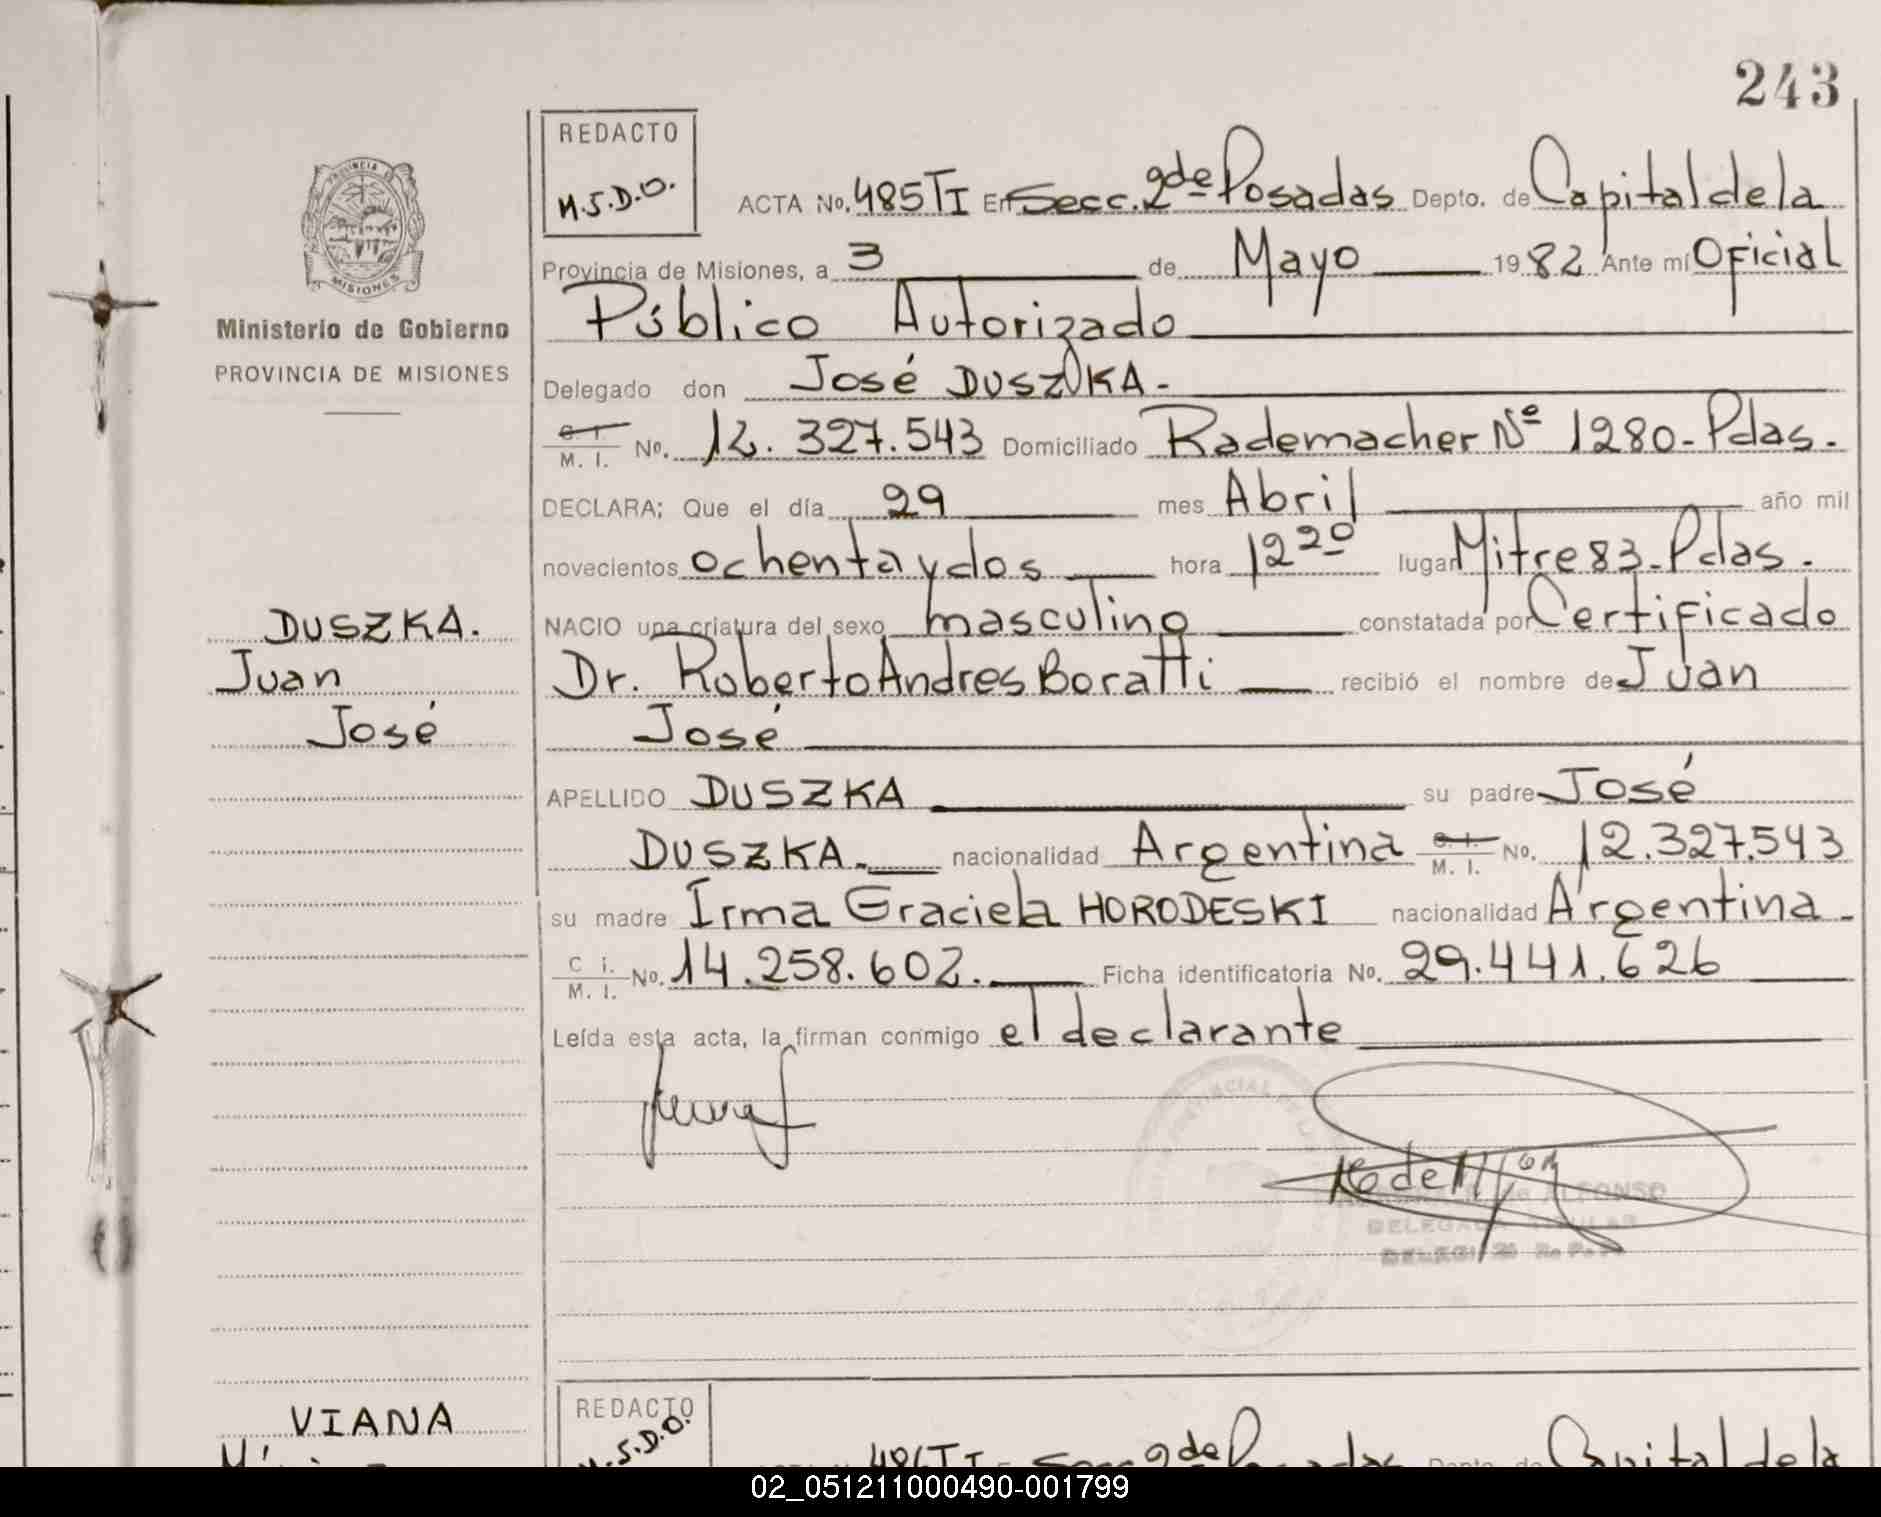 243
REDACTO
M.S.D.O.
ACTA No. 485 TI En Secc. 2da de Posadas Depto. de Capital de la
PROVINCIA DE MISIONES
Provincia de Misiones, a 3 de Mayo 1982 Ante mí Oficial
Ministerio de Gobierno
PROVINCIA DE MISIONES
Público Autorizado
Delegado don José DUSZKA.-
C. I. M. I. No. 12.327.543 Domiciliado Rademacher Nº 1280-Pdas.-
DECLARA; Que el día 29 mes Abril año mil
novecientos ochenta y dos hora 12 20 lugar Mitre 83-Pdas.-
DUSZKA.
Juan
José
NACIO una criatura del sexo masculino constatada por Certificado
Dr. Roberto Andres Boratti recibió el nombre de Juan
José
APELLIDO DUSZKA su padre José
DUSZKA.- nacionalidad Argentina C. I. M. I. No. 12.327.543
su madre Irma Graciela HORODESKI nacionalidad Argentina-
C. I. M. I. No. 14.258.602. Ficha identificatoria No. 29.441.626
Leída esta acta, la firman conmigo el declarante
ALFONSO
REDACTO
M.S.D.O.
VIANA
486 TI
02_051211000490-001799